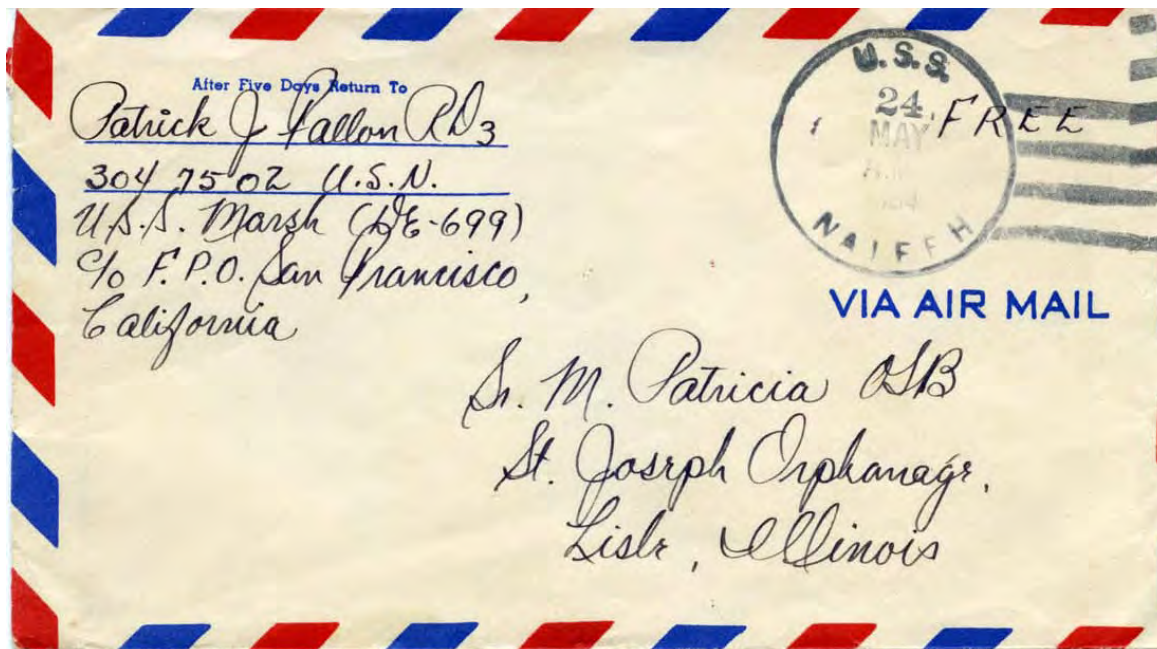 After Five Days Return To
Patrick J Fallon RD3
304 75 02 U.S.N.
U.S.S. Marsh (DE-699)
c/o F.P.O. San Francisco,
California
U.S.S.
24
MAY
NAIFEH
FREE
VIA AIR MAIL
Sr. M. Patricia OSB
St. Joseph Orphanage,
Lisle, Illinois